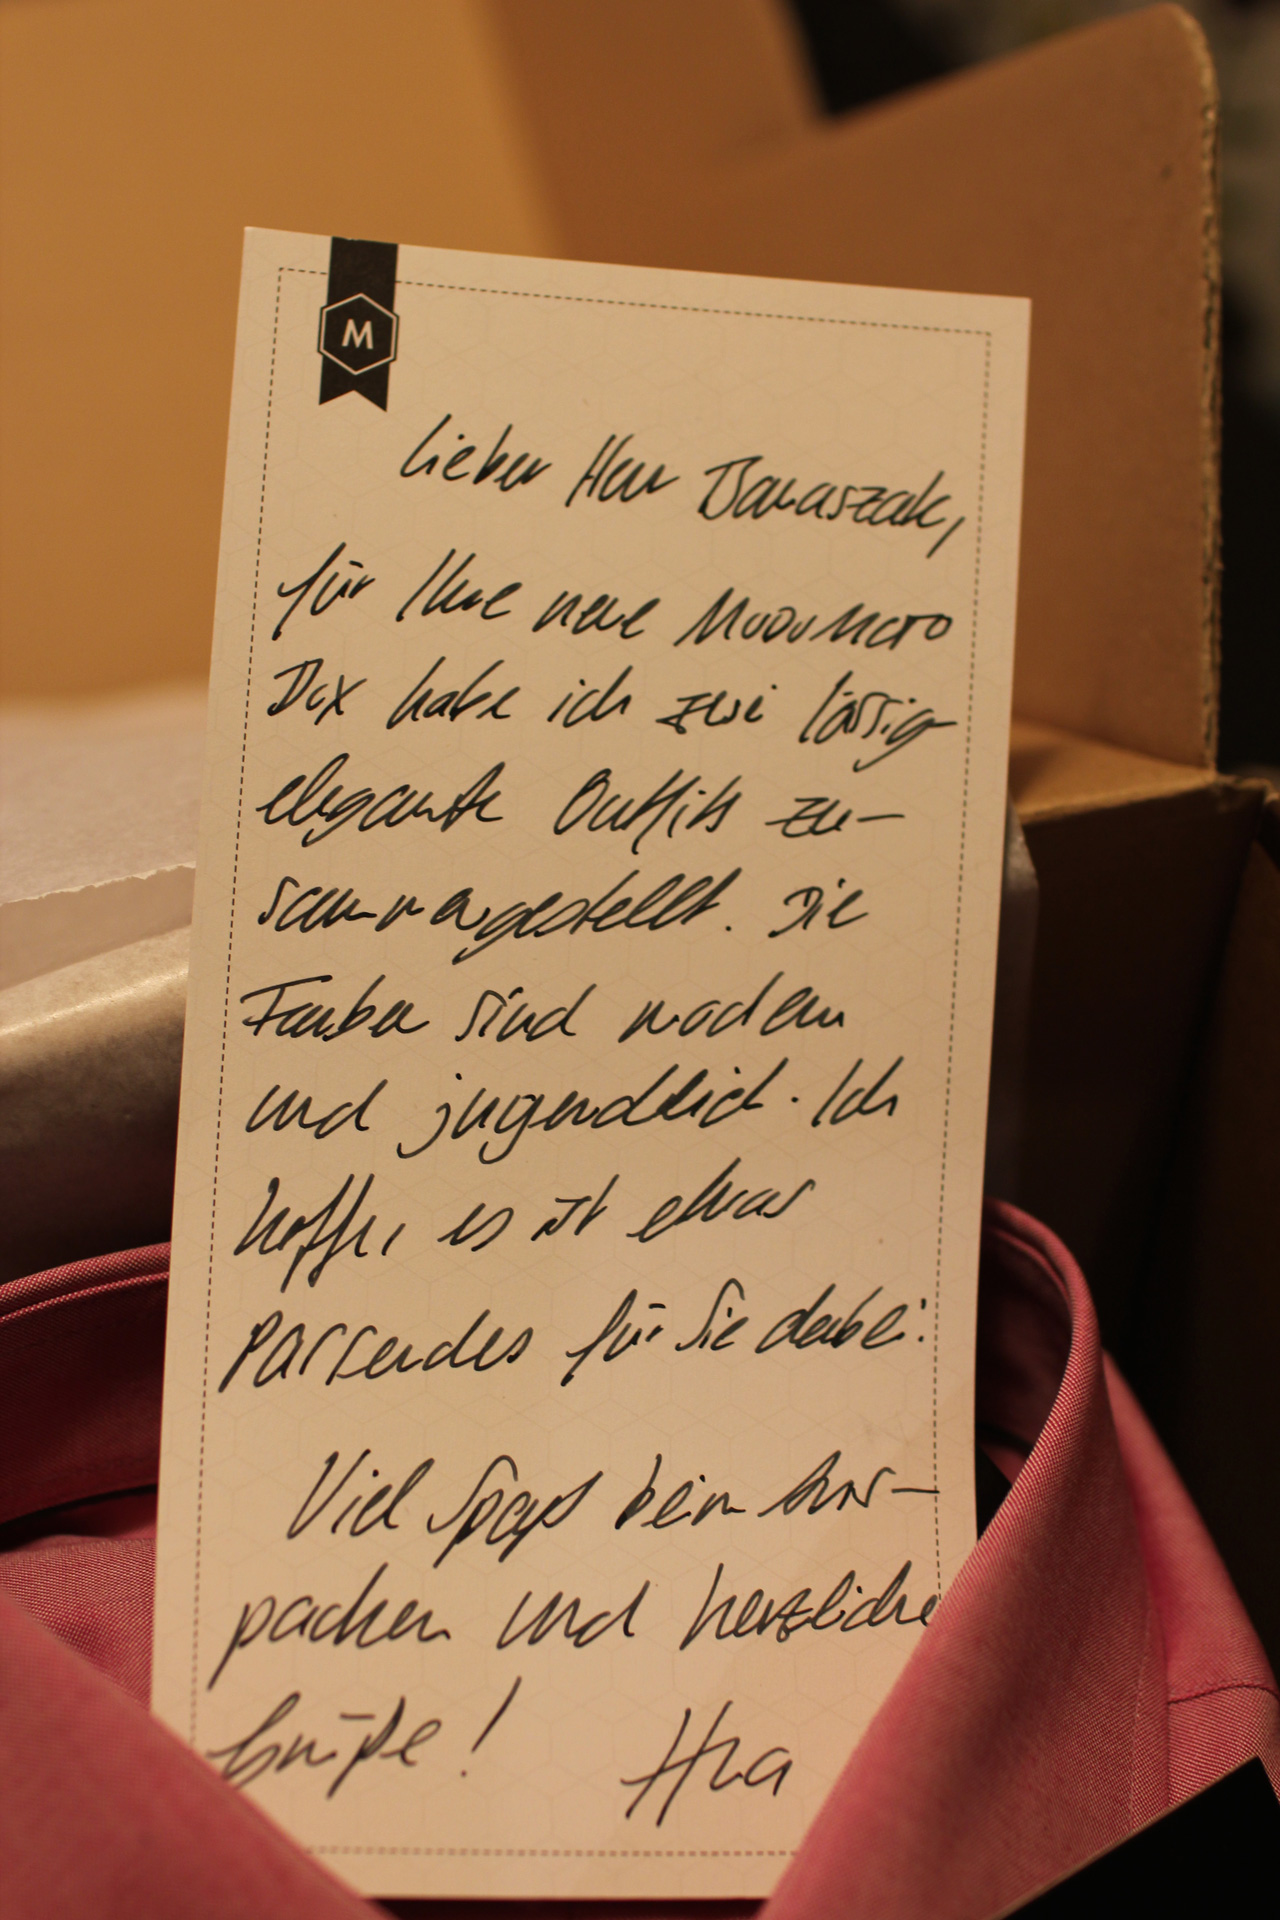 M
Lieber Herr Banaszak,
für Ihre neue Modomoto
Box habe ich zwei lässig
elegante Outfits zu-
sammengestellt. Die
Farben sind modern
und jugendlich. Ich
hoffe, es ist etwas
Passendes für Sie dabei.
Viel Spaß beim Aus-
packen und herzliche
Grüße!